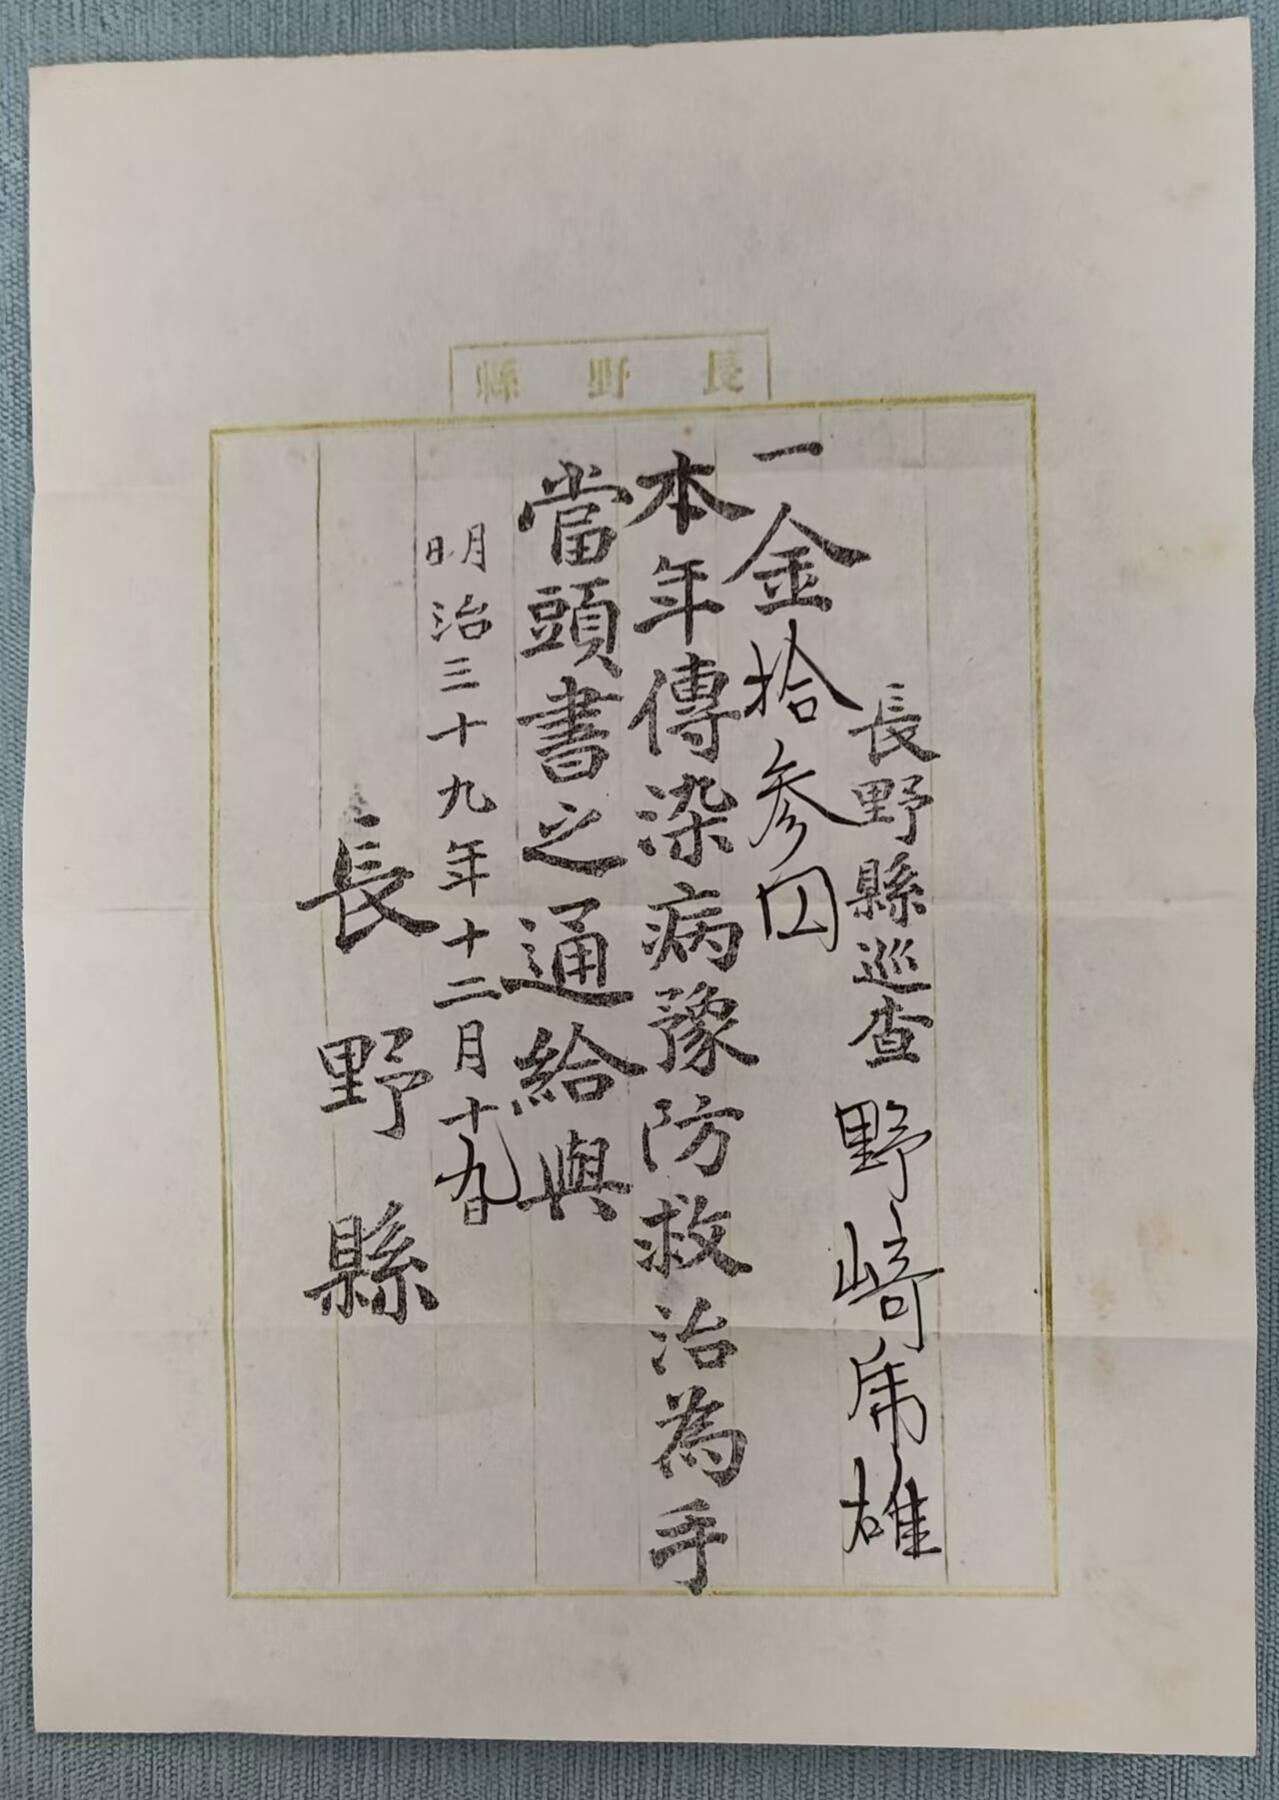 長野縣
長野縣巡査 野﨑虎雄
一金拾参円
本年傳染病豫防救治為手
當頭書之通給與
明治三十九年十二月十九日
長野縣